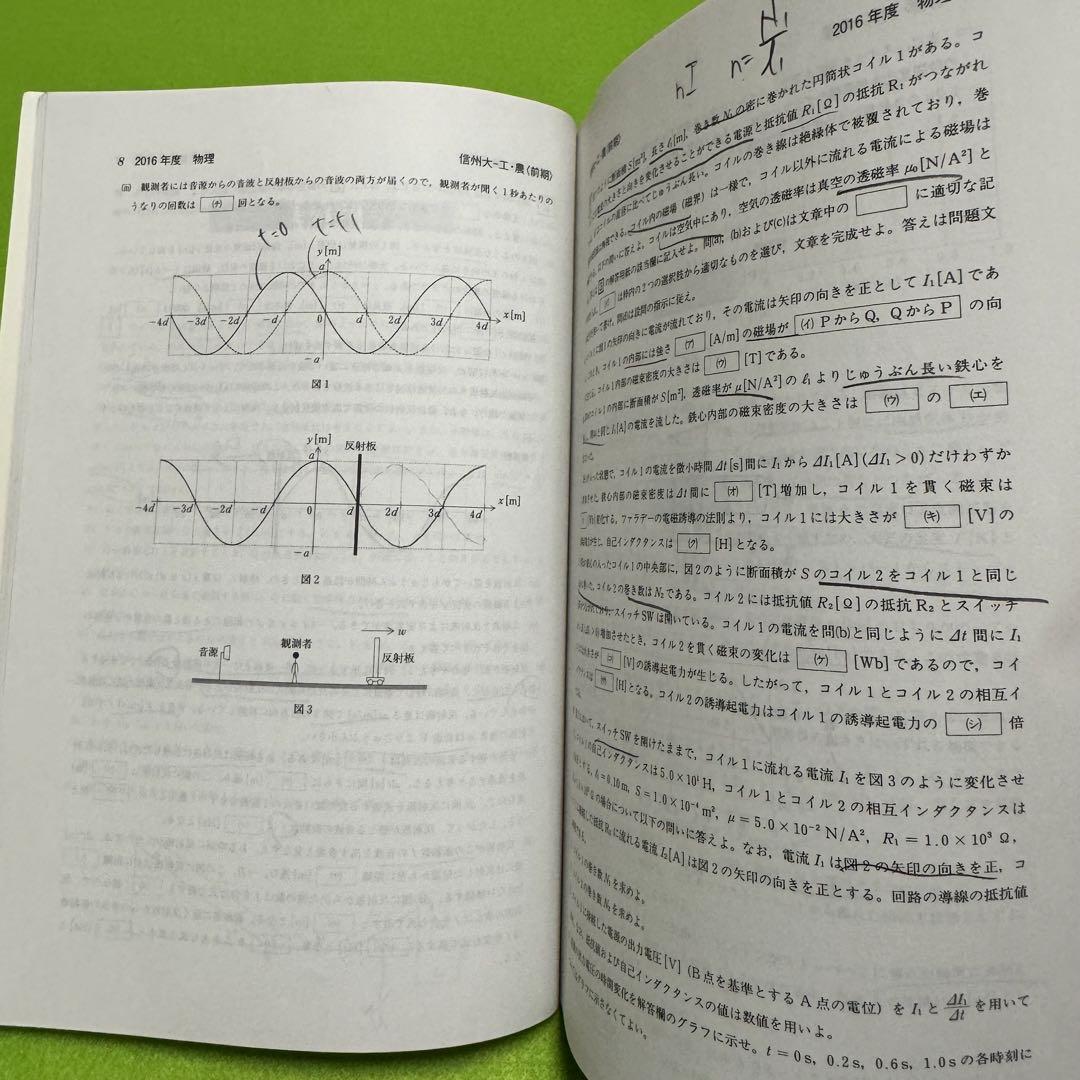 8 2016年度 物理
信州大-工・農〈前期〉
(iii) 観測者には音源からの音波と反射板からの音波の両方が届くので，観測者が聞く1秒あたりの
うなりの回数は (チ) 回となる。
t=0 t=t1
y[m]
a
-4d -3d -2d -d 0 d 2d 3d 4d x[m]
-a
図1
反射板
y[m]
a
-4d -3d -2d -d 0 d 2d 3d 4d x[m]
-a
図2
音源 観測者 w 反射板
図3
nI n=N1/l1
2016年度 物理
断面積S[m²]，長さl1[m]，巻き数N1の密に巻かれた円筒状コイル1がある。コ
大きさと向きを変化させることができる電源と抵抗値R1[Ω]の抵抗R1がつながれ
に比べてじゅうぶん長い。コイルの巻き線は絶縁体で被覆されており，巻
コイル内の磁場（磁界）は一様で，コイル以外に流れる電流による磁場は
以下の問いに答えよ。コイルは空気中にあり，空気の透磁率は真空の透磁率μ0[N/A²]と
の解答用紙の該当欄に記入せよ。問(a)，(b)および(c)は文章中の に適切な記
は枠内の2つの選択肢から適切なものを選び，文章を完成せよ。答えは問題文
問(d)は設問の指示に従え。
図1の矢印の向きに電流が流れており，その電流は矢印の向きを正としてI1[A]であ
コイル1の内部には強さ (ア) [A/m]の磁場が (イ) PからQ，QからP の向
コイル1内部の磁束密度の大きさは (ウ) [T]である。
コイル1の内部に断面積がS[m²]，透磁率がμ[N/A²]のl1よりじゅうぶん長い鉄心を
と同じI1[A]の電流を流した。鉄心内部の磁束密度の大きさは (ウ) の (エ)
状態で，コイル1の電流を微小時間Δt[s]間にI1からΔI1[A](ΔI1>0)だけわずか
させた。鉄心内部の磁束密度はΔt間に (オ) [T]増加し，コイル1を貫く磁束は
[Wb]変化する。ファラデーの電磁誘導の法則より，コイル1には大きさが (キ) [V]の
が生じ，自己インダクタンスは (ク) [H]となる。
の入ったコイル1の中央部に，図2のように断面積がSのコイル2をコイル1と同じ
コイル2の巻き数はN2である。コイル2には抵抗値R2[Ω]の抵抗R2とスイッチ
スイッチSWは開いている。コイル1の電流を問(b)と同じようにΔt間にI1
増加させたとき，コイル2を貫く磁束の変化は (ケ) [Wb]であるので，コイ
(コ) [V]の誘導起電力が生じる。したがって，コイル1とコイル2の相互イ
(サ) [H]となる。コイル2の誘導起電力はコイル1の誘導起電力の (シ) 倍
スイッチSWを開けたままで，コイル1に流れる電流I1を図3のように変化させ
の自己インダクタンスは5.0×10¹H，コイル1とコイル2の相互インダクタンスは
l1=0.10m，S=1.0×10⁻⁴m²，μ=5.0×10⁻²N/A²，R1=1.0×10³Ω，
の場合について以下の問いに答えよ。なお，電流I1は図2の矢印の向きを正，コ
抵抗R2に流れる電流I2[A]は図2の矢印の向きを正とする。回路の導線の抵抗値
の巻き数N1を求めよ。
の巻き数N2を求めよ。
に接続した電源の出力電圧[V]（B点を基準とするA点の電位）をI1とΔI1/Δtを用いて
抵抗値および自己インダクタンスの値は数値を用いよ。
電圧の時間変化を解答欄のグラフに示せ。t=0s，0.2s，0.6s，1.0sの各時刻に
グラフに示さなくてよい。